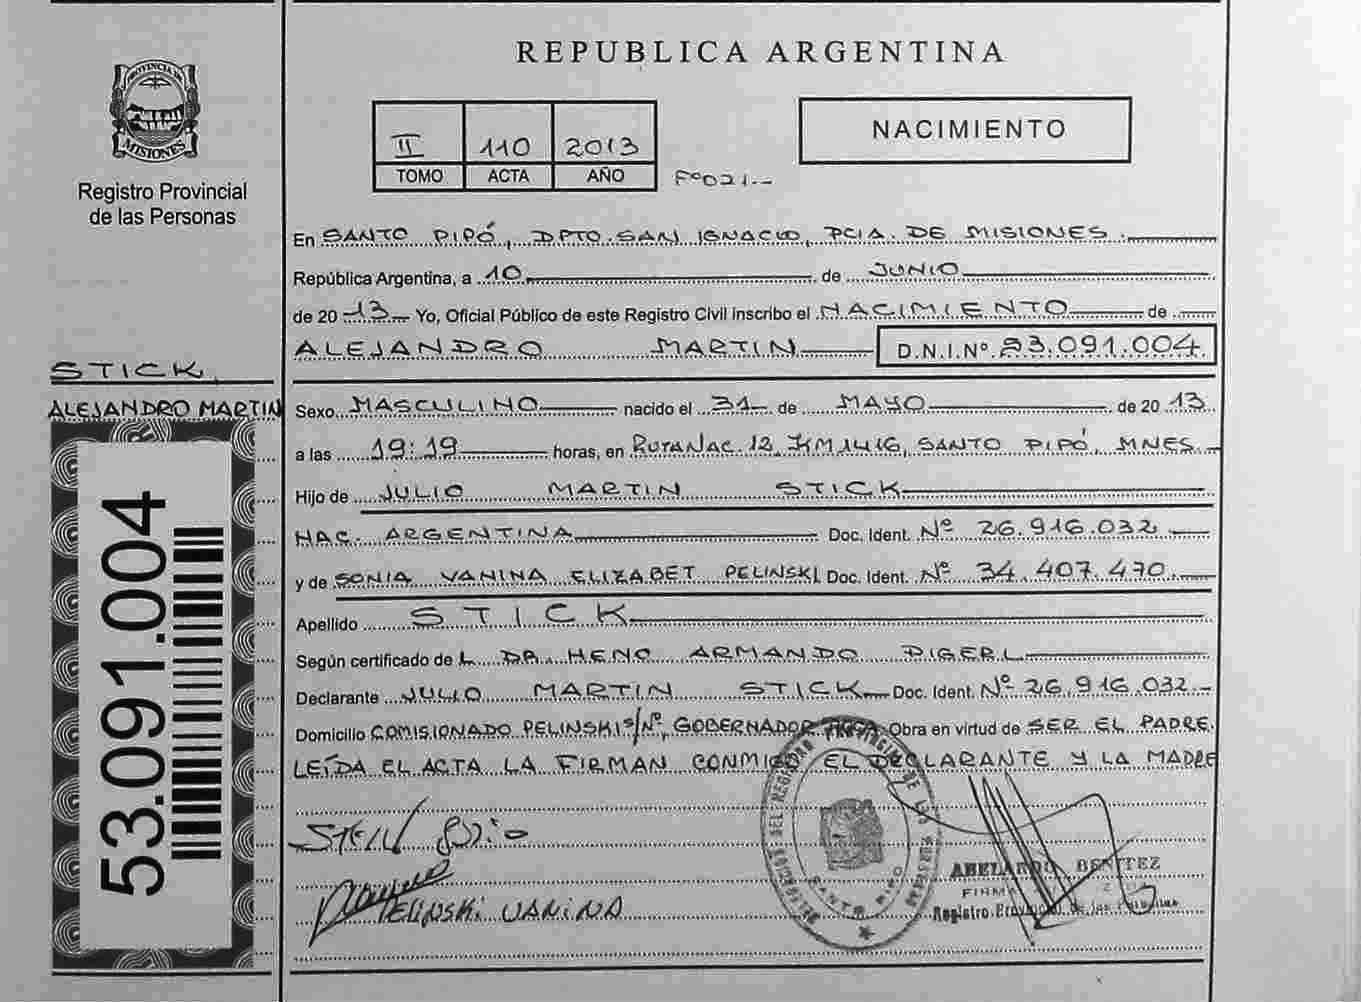 REPUBLICA ARGENTINA
PROVINCIA DE
MISIONES
Registro Provincial
de las Personas
II 110 2013
TOMO ACTA AÑO
Fº021.-
NACIMIENTO
En SANTO PIPÓ, DPTO. SAN IGNACIO, PCIA. DE MISIONES.
República Argentina, a 10 de JUNIO
de 2013 Yo, Oficial Público de este Registro Civil inscribo el NACIMIENTO de
ALEJANDRO MARTIN D.N.I.Nº 53.091.004
STICK,
ALEJANDRO MARTIN
53.091.004
Sexo MASCULINO nacido el 31 de MAYO de 2013
a las 19:19 horas, en RUTA NAC. 12, KM 1416, SANTO PIPÓ, MNES.
Hijo de JULIO MARTIN STICK
NAC. ARGENTINA Doc. Ident. Nº 26.916.032
y de SONIA VANINA ELIZABET PELINSKI Doc. Ident. Nº 34.407.470
Apellido STICK
Según certificado de L DR. HENO ARMANDO DIGERL
Declarante JULIO MARTIN STICK Doc. Ident. Nº 26.916.032.-
Domicilio COMISIONADO PELINSKI S/Nº, GOBERNADOR ROCA Obra en virtud de SER EL PADRE.
LEÍDA EL ACTA LA FIRMAN CONMIGO EL DECLARANTE Y LA MADRE
STICK Julio
PELINSKI VANINA
SANTO PIPO
ABELARDO BENITEZ
FIRMA
Registro Provincial de las Personas